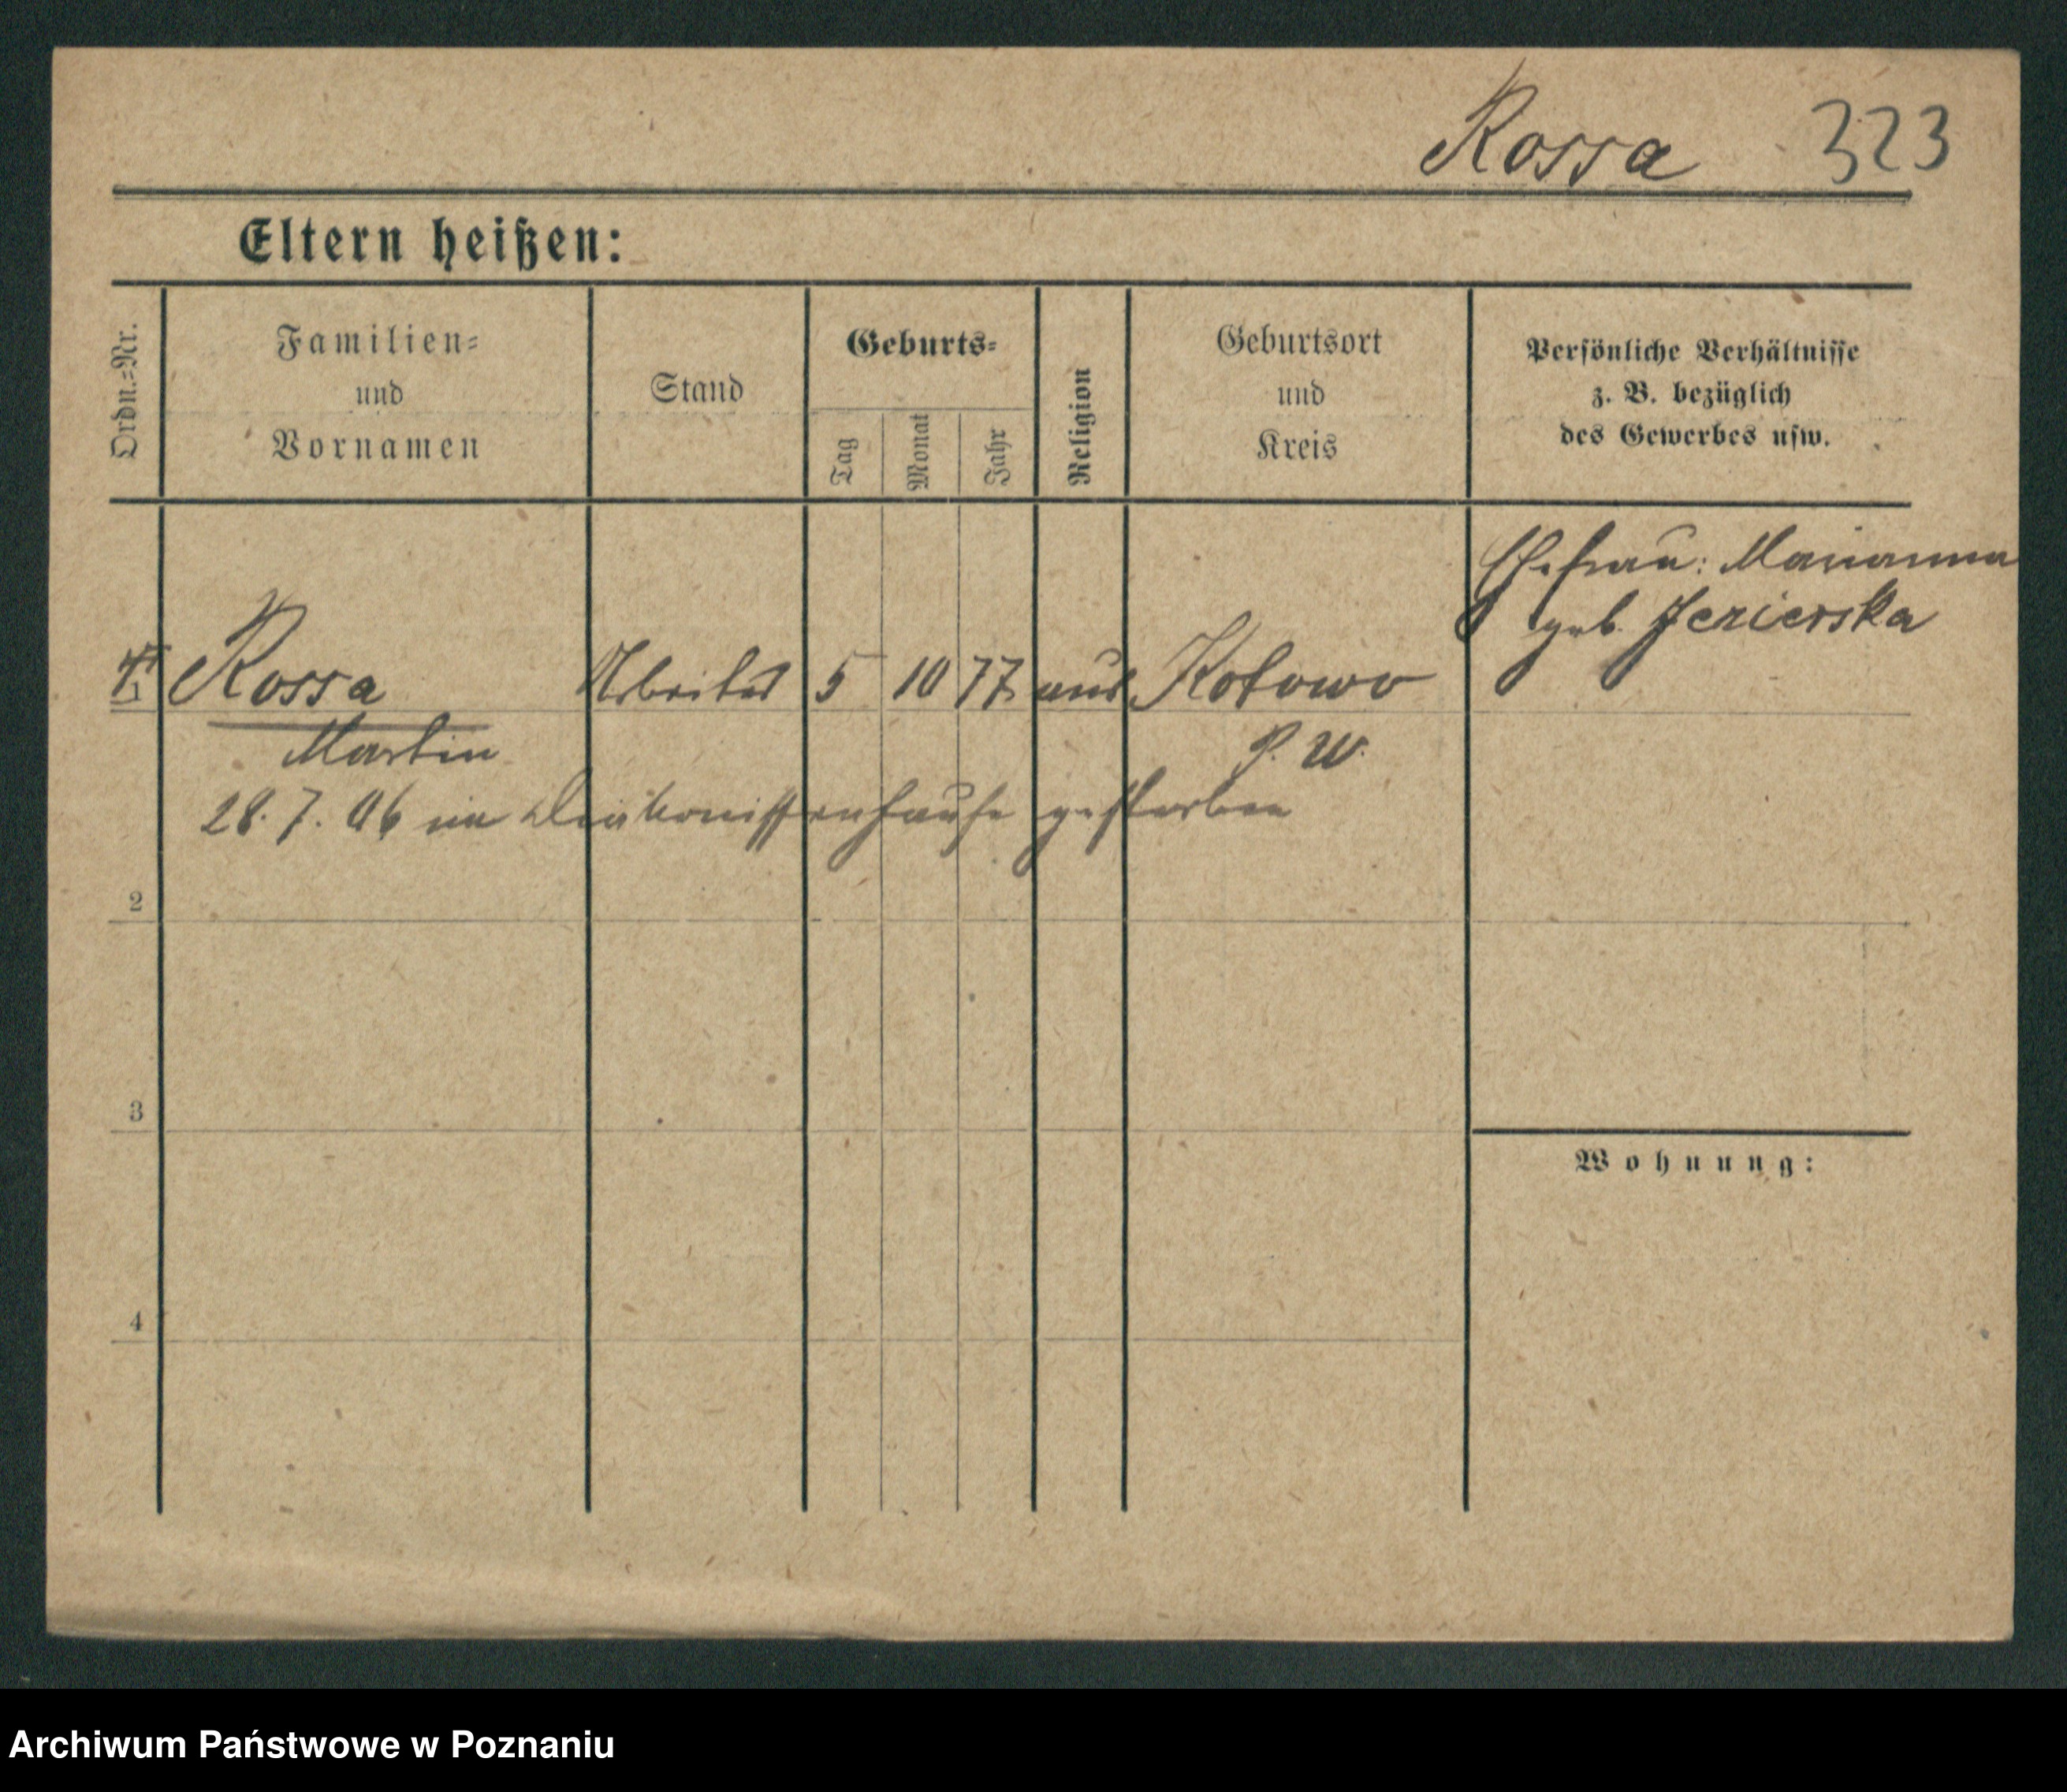 Rossa 323
Eltern heißen:
Ordn.=Nr.
Familien=
und
Vornamen
Stand
Geburts=
Tag
Monat
Jahr
Religion
Geburtsort
und
Kreis
Persönliche Verhältnisse
z. B. bezüglich
des Gewerbes usw.
Ehefrau: Marianna
geb. Jezierska
Rossa Arbeiter 5 10 77 aus Kotowo
Martin P. W.
28. 7. 06 im Diakonissenhause gestorben
2
3
Wohnung:
4
Archiwum Państwowe w Poznaniu